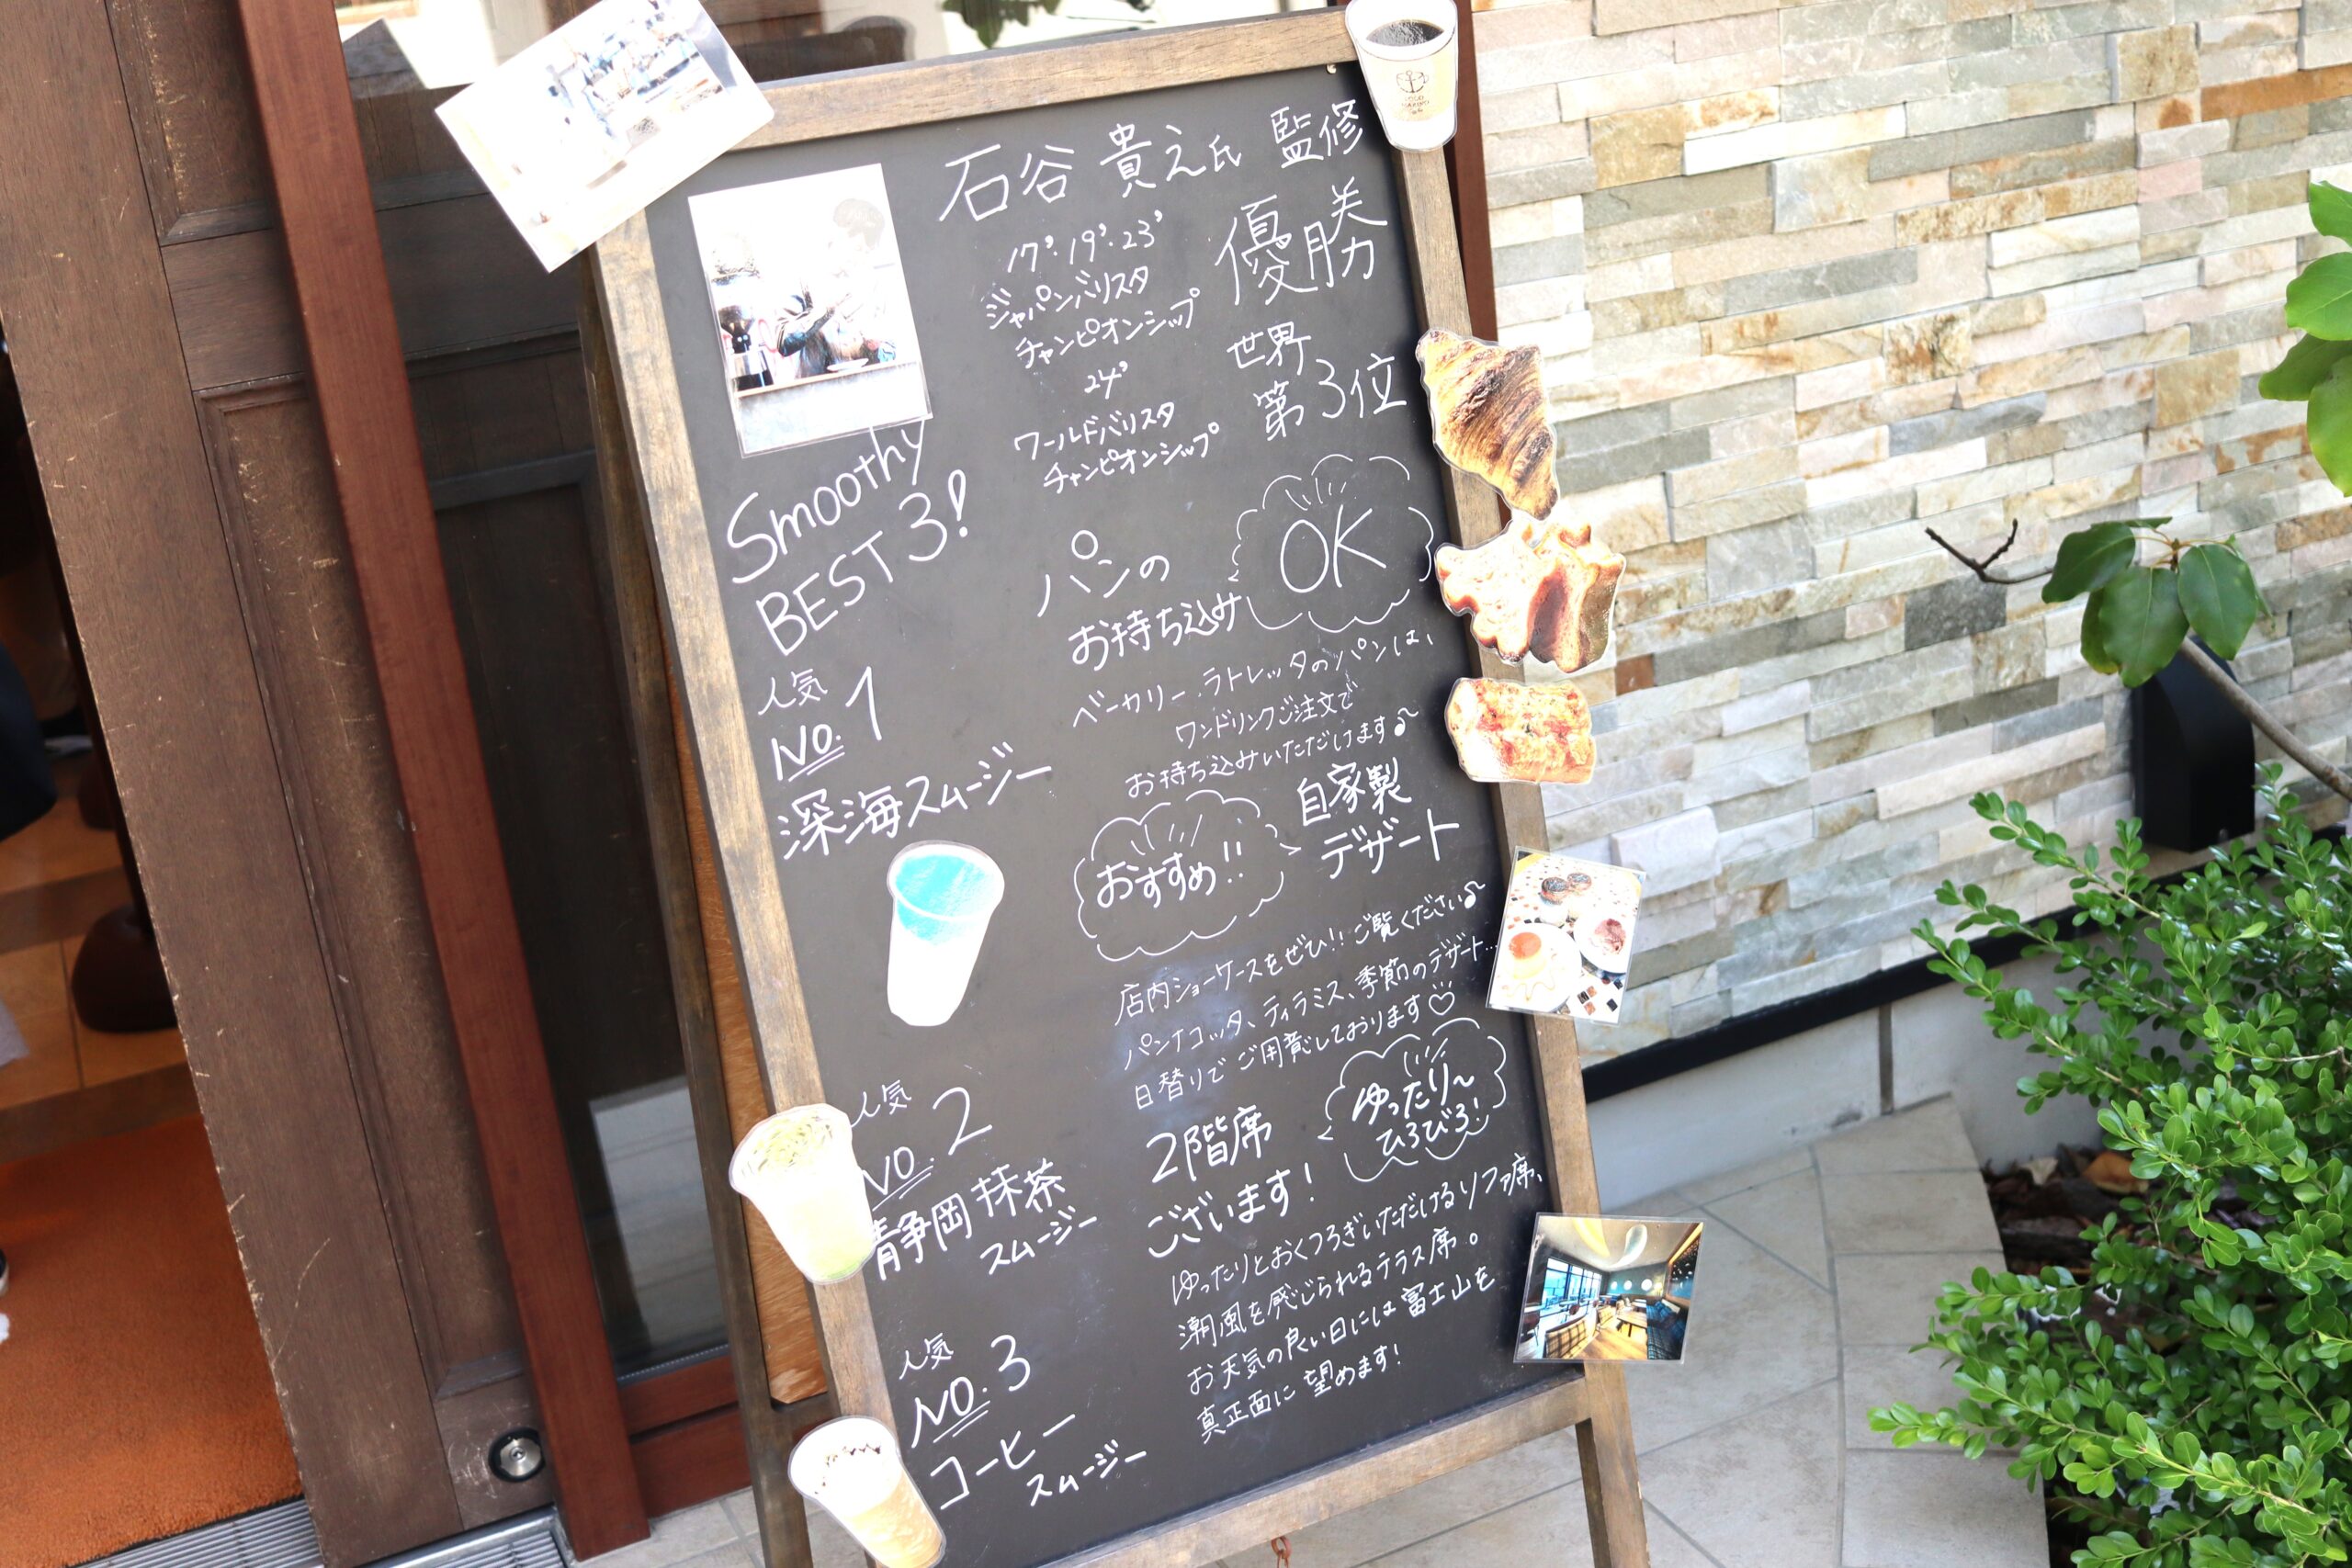 石谷 貴之氏 監修
17'・19'・23'
ジャパンバリスタ
チャンピオンシップ
優勝
24'
ワールドバリスタ
チャンピオンシップ
世界
第3位
Smoothy
BEST 3!
人気
NO.1
深海スムージー
人気
NO.2
静岡抹茶
スムージー
人気
NO.3
コーヒー
スムージー
パンの
お持ち込み
OK
ベーカリー.ラトレッタのパンは、
ワンドリンクご注文で
お持ち込みいただけます♪
おすすめ!!
自家製
デザート
店内ショーケースをぜひ!!ご覧ください♪
パンナコッタ、ティラミス、季節のデザート...
日替りでご用意しております♡
2階席
ございます!
ゆったり~
ひろびろ!
ゆったりとおくつろぎいただけるソファ席、
潮風を感じられるテラス席。
お天気の良い日には富士山を
真正面に望めます!